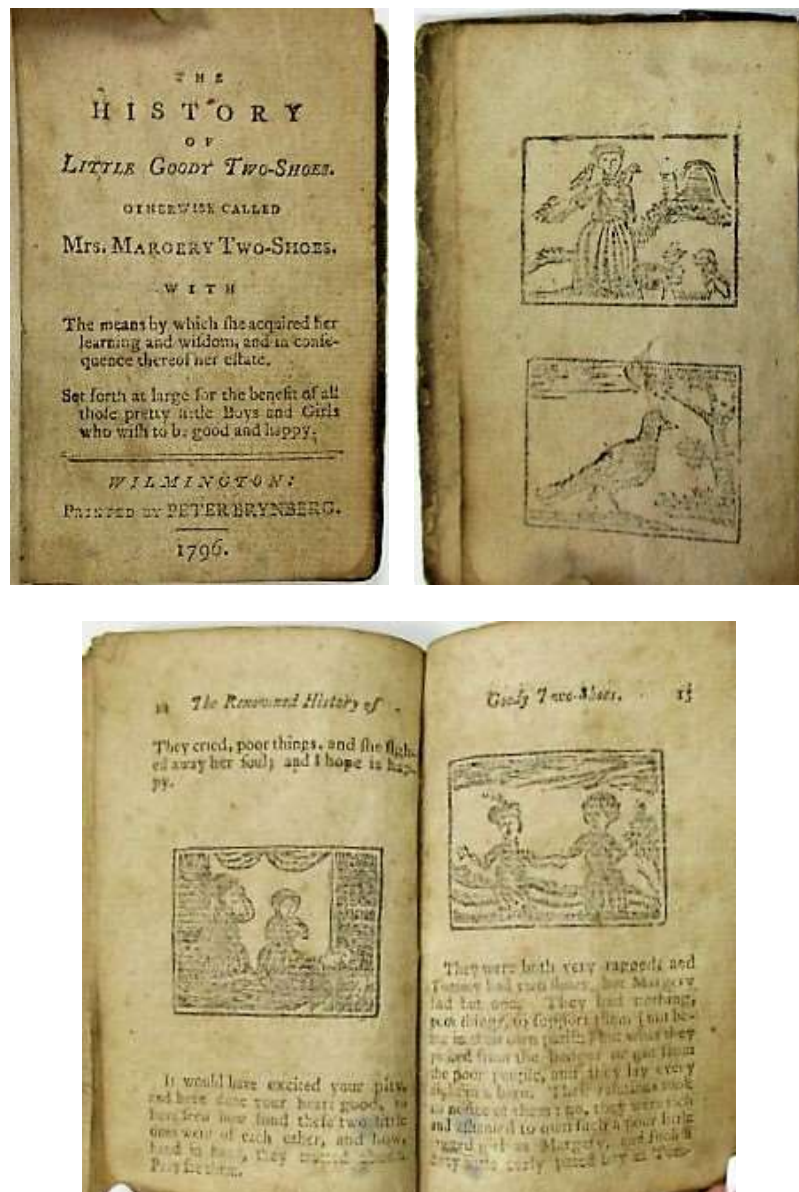 THE
HISTORY
OF
LITTLE GOODY TWO-SHOES.
OTHERWISE CALLED
Mrs. MARGERY TWO-SHOES.
WITH
The means by which ſhe acquired her
learning and wiſdom, and in conſe-
quence thereof her eſtate.
Set forth at large for the benefit of all
thoſe pretty little Boys and Girls
who wiſh to be good and happy.
WILMINGTON:
PRINTED BY PETER BRYNBERG.
1796.
The Renowned History of
They cried, poor things, and ſhe ſigh-
ed away her ſoul; and I hope is hap-
py.
It would have excited your pity,
and have done your heart good, to
have ſeen how fond theſe two little
ones were of each other, and how,
hand in hand, they trotted about.
Goody Two-Shoes. 13
They were both very ragged; and
Tommy had two ſhoes, but Margery
had but one. They had nothing,
poor things, to ſupport them (not be-
ing in their own pariſh) but what they
picked from the hedges or got from
the poor people, and they lay every
night in a barn. Their relations took
no notice of them; no, they were rich
and aſhamed to own ſuch a poor little
ragged girl as Margery, and ſuch a